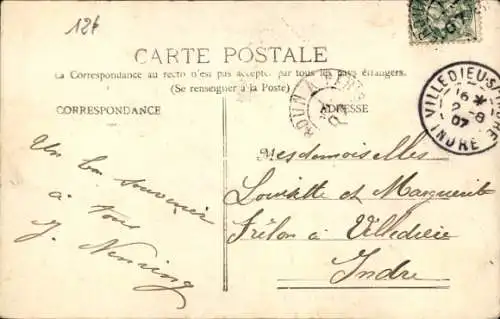 12f
CARTE POSTALE
La Correspondance au recto n'est pas acceptée par tous les pays étrangers.
(Se renseigner à la Poste)
CORRESPONDANCE
ADRESSE
VILLEDIEU-S
INDRE
16
2-8
07
07
Un bon souvenir
à tous
J.
Mesdemoiselles
Louisette et Marguerite
Frélon à Villedieu
Indre